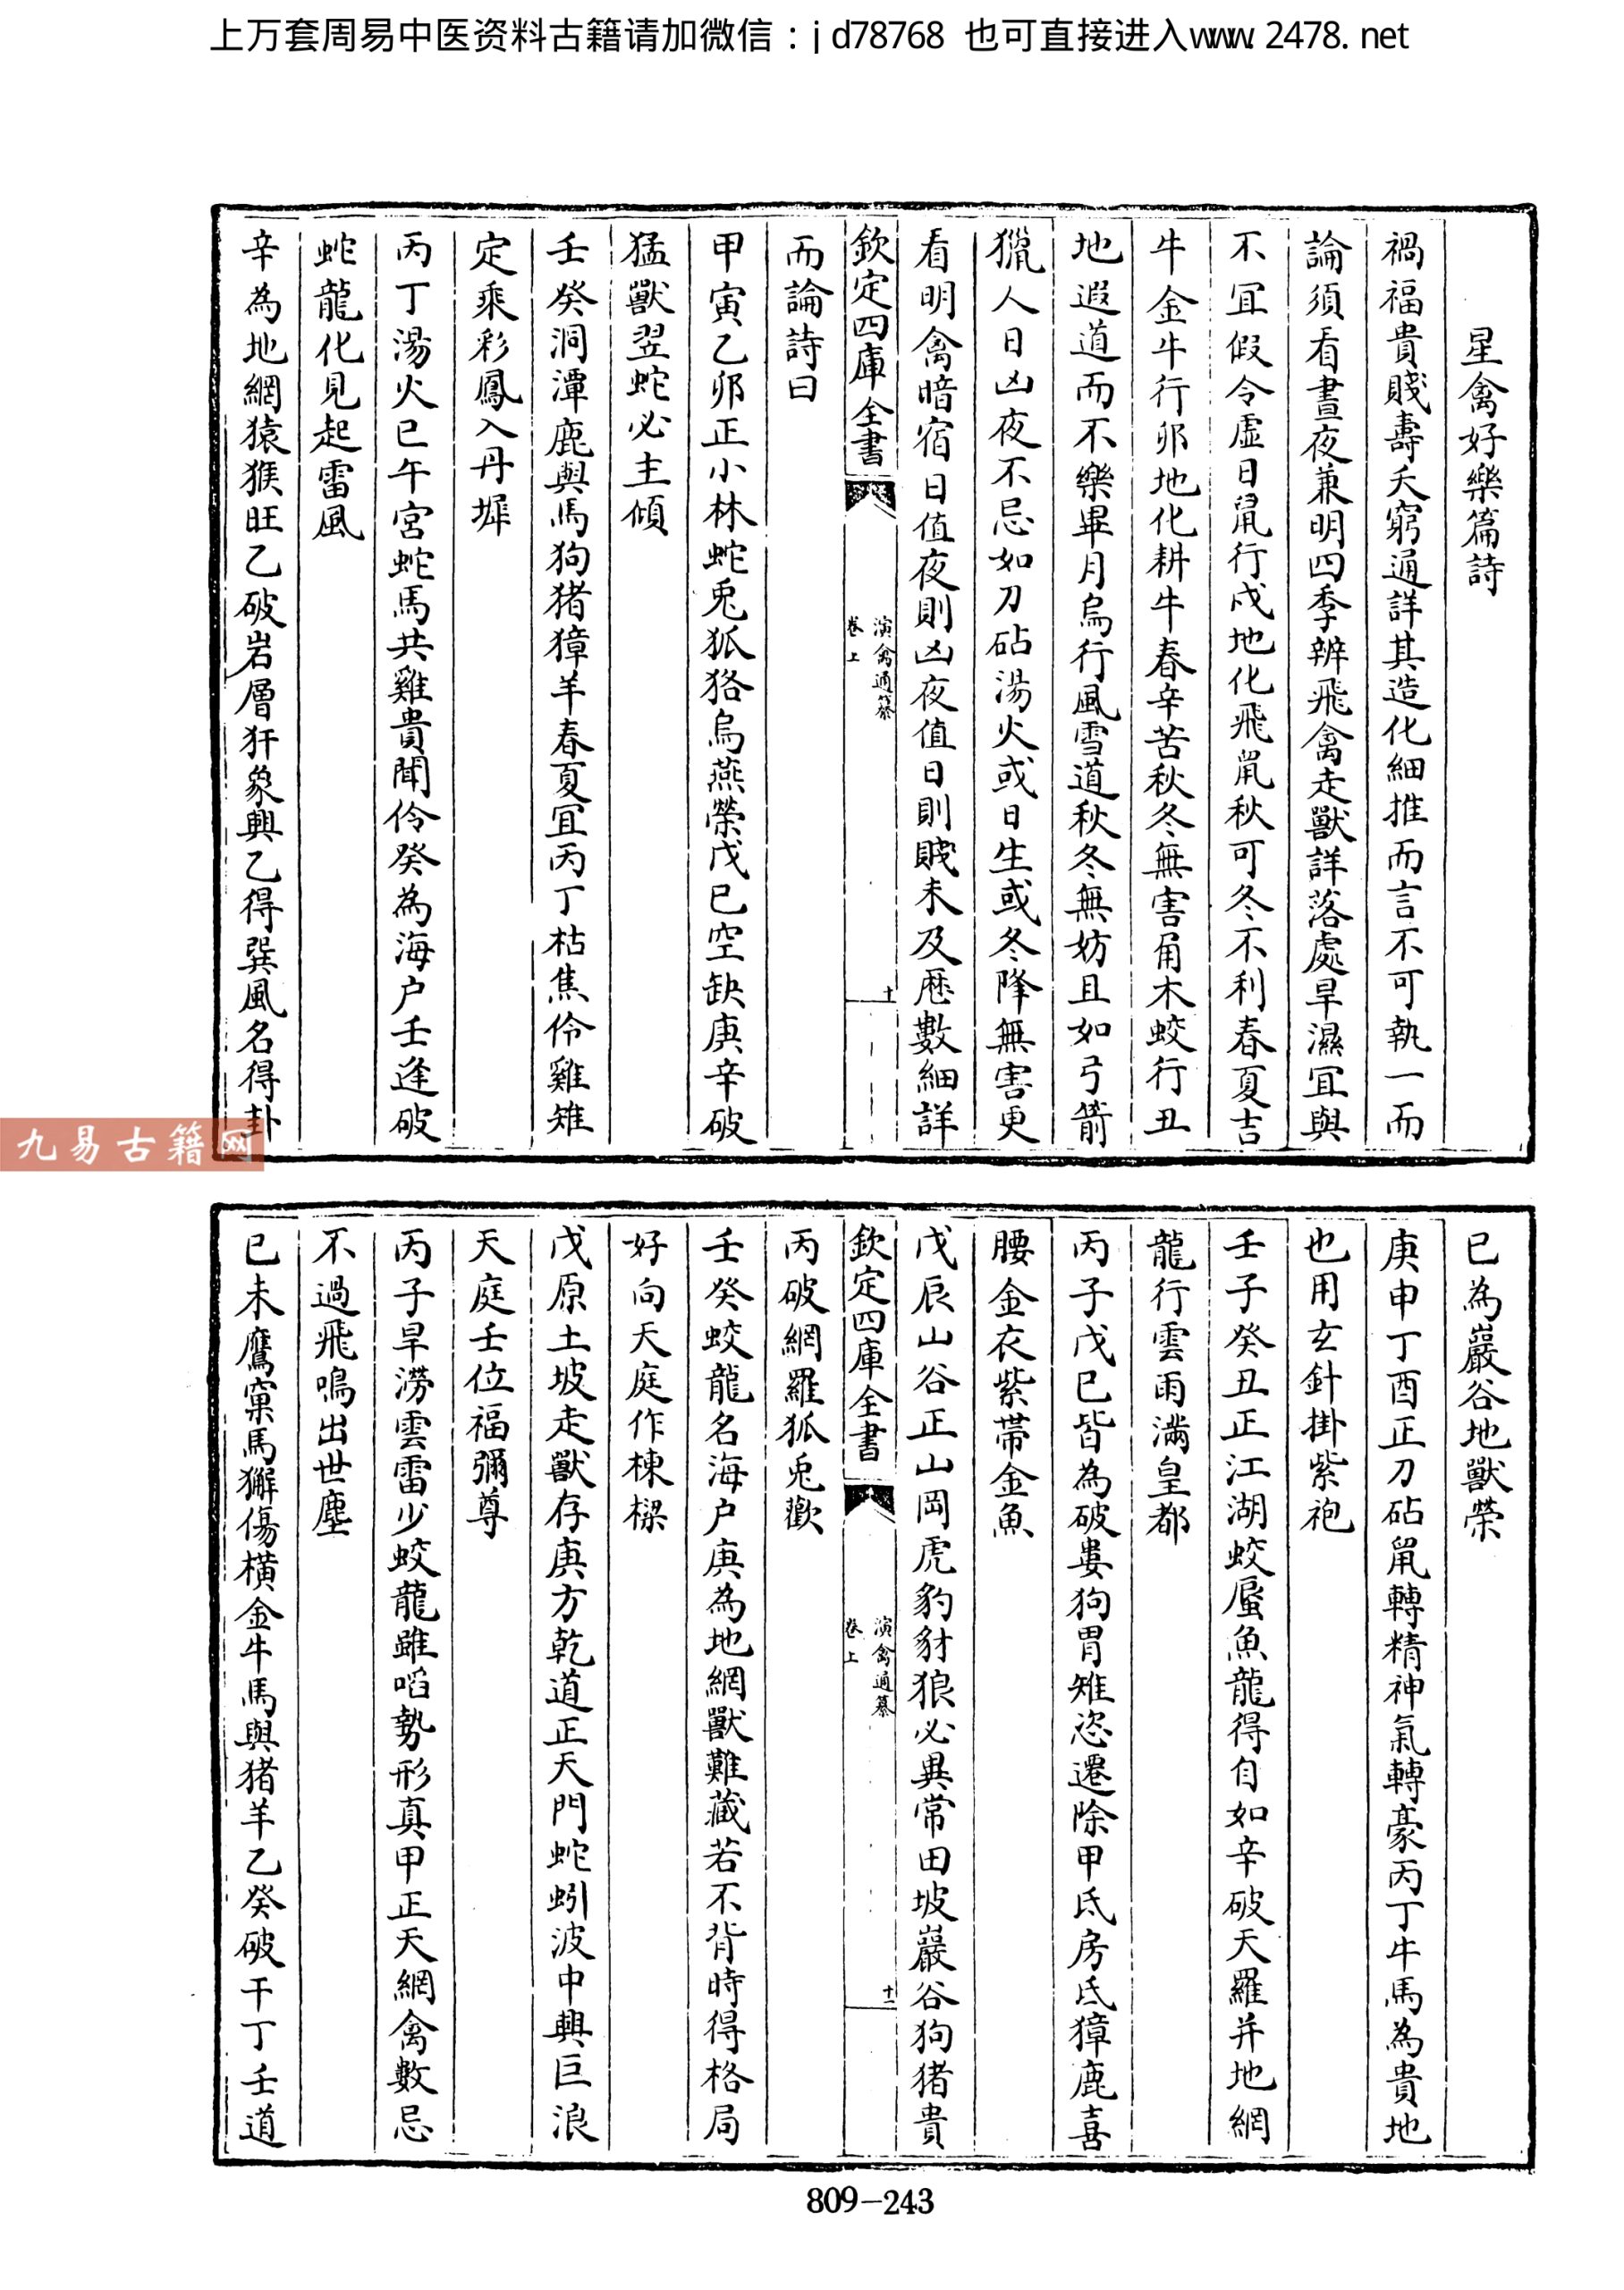 上万套周易中医资料古籍请加微信：jd78768 也可直接进入www.2478.net
星禽好樂篇詩
禍福貴賤壽夭窮通詳其造化細推而言不可執一而
論須看晝夜兼明四季辨飛禽走獸詳落處旱濕宜與
不宜假令虛日鼠行戌地化飛鼠秋可冬不利春夏吉
牛金牛行卯地化耕牛春辛苦秋冬無害角木蛟行丑
地遐道而不樂畢月烏行風雪道秋冬無妨且如弓箭
獵人日凶夜不忌如刀砧湯火或日生或冬降無害更
看明禽暗宿日值夜則凶夜值日則賤未及厯數細詳
欽定四庫全書
演禽通纂
卷上
十
而論詩曰
甲寅乙卯正小林蛇兎狐狢烏燕榮戊己空缺庚辛破
猛獸翌蛇必主傾
壬癸洞潭鹿與馬狗猪獐羊春夏宜丙丁枯焦伶雞雉
定乘彩鳳入丹墀
丙丁湯火巳午宮蛇馬共雞貴聞伶癸為海户壬逢破
蛇龍化見起雷風
辛為地網猿猴旺乙破岩層犴象興乙得巽風名得卦
已為巖谷地獸榮
庚申丁酉正刀砧鼠轉精神氣轉豪丙丁牛馬為貴地
也用玄針掛紫袍
壬子癸丑正江湖蛟蜃魚龍得自如辛破天羅并地網
龍行雲雨滿皇都
丙子戊巳皆為破婁狗胃雉恣遷除甲氐房氐獐鹿喜
腰金衣紫帶金魚
戊辰山谷正山岡虎豹豺狼必異常田坡巖谷狗猪貴
欽定四庫全書
演禽通纂
卷上
十一
丙破網羅狐兎歡
壬癸蛟龍名海户庚為地網獸難藏若不背時得格局
好向天庭作棟樑
戊原土坡走獸存庚方乾道正天門蛇蚓波中興巨浪
天庭壬位福彌尊
丙子旱澇雲雷少蛟龍雖㗖勢形真甲正天網禽數忌
不過飛鳴出世塵
已未鷹窠馬獬傷橫金牛馬與猪羊乙癸破干丁壬道
809-243
九易古籍网